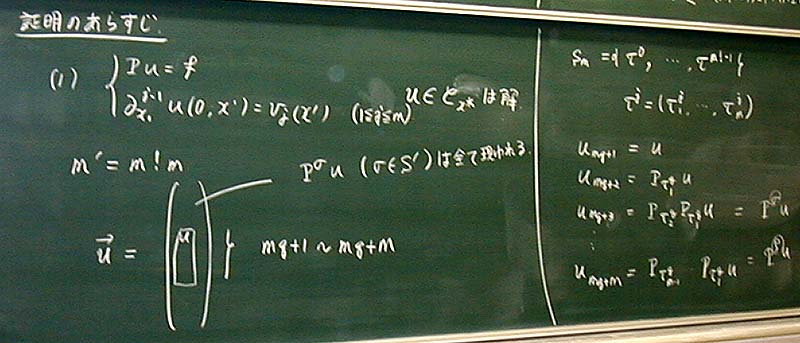 証明のあらすじ.
(1) { Pu = f
∂_{x_1}^{j-1} u(0, x') = v_j(x') (1≤j≤m) u ∈ 𝓔_{x*} は解.
m' = m! m
P^σ u (σ∈S') は全て現われる.
\vec{u} = ( u ) } mq+1 ~ mq+m
S_m = { τ^0, …, τ^{m!-1} }
τ^j = (τ_1^j, …, τ_m^j)
u_{mq+1} = u
u_{mq+2} = P_{τ_1^q} u
u_{mq+3} = P_{τ_2^q} P_{τ_1^q} u = P u
⋮
u_{mq+m} = P_{τ_{m-1}^q} P_{τ_1^q} u = P u